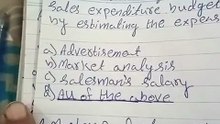 Sales expenditure budget
by estimating the expens
a) Advertisement
b) Market analysis
c) Salesman's salary
d) All of the above